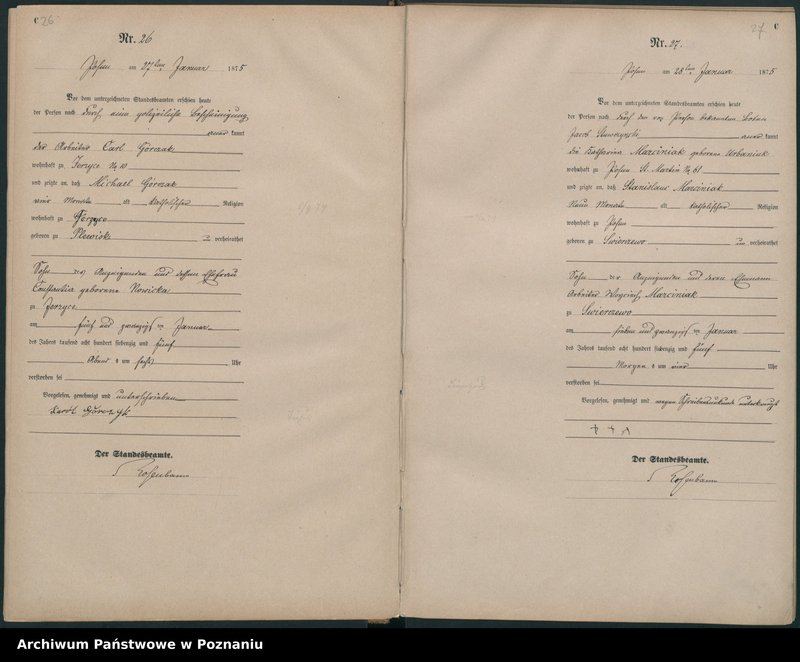 C 26
Nr. 26
Posen am 27ten Januar 1875
Vor dem unterzeichneten Standesbeamten erschien heute
der Person nach durch eine polizeiliche Bescheinigung
anerkannt
der Arbeiter Carl Górczak
wohnhaft zu Jerzyce No 10
und zeigte an, daß Michael Górczak
vier Monate alt katholischer Religion
wohnhaft zu Jerzyce
geboren zu Plewisk unverheirathet
Sohn des Anzeigenden und dessen Ehefrau
Constantia geborene Nowicka
zu Jerzyce
am fünf und zwanzigsten Januar
des Jahres tausend acht hundert siebenzig und fünf
Abends um sechs Uhr
verstorben sei
Vorgelesen, genehmigt und unterschrieben
Karól Górczak
Der Standesbeamte.
Rosenbaum
27 C
Nr. 27.
Posen am 28ten Januar 1875
Vor dem unterzeichneten Standesbeamten erschien heute
der Person nach durch den von Person bekannten Boten
Jacob anerkannt
die Katharina Marciniak geborene Urbaniak
wohnhaft zu Posen St. Martin No 61
und zeigte an, daß Stanislaus Marciniak
Neun Monate alt katholischer Religion
wohnhaft zu Posen
geboren zu Swierczewo unverheirathet
Sohn der Anzeigenden und deren Ehemann
Arbeiter Woyciech Marciniak
zu Swierczewo
am sieben und zwanzigsten Januar
des Jahres tausend acht hundert siebenzig und fünf
Morgens um vier Uhr
verstorben sei
Vorgelesen, genehmigt und wegen Schreibensunkunde unterkreuzt
+ + +
Der Standesbeamte.
Rosenbaum
Archiwum Państwowe w Poznaniu